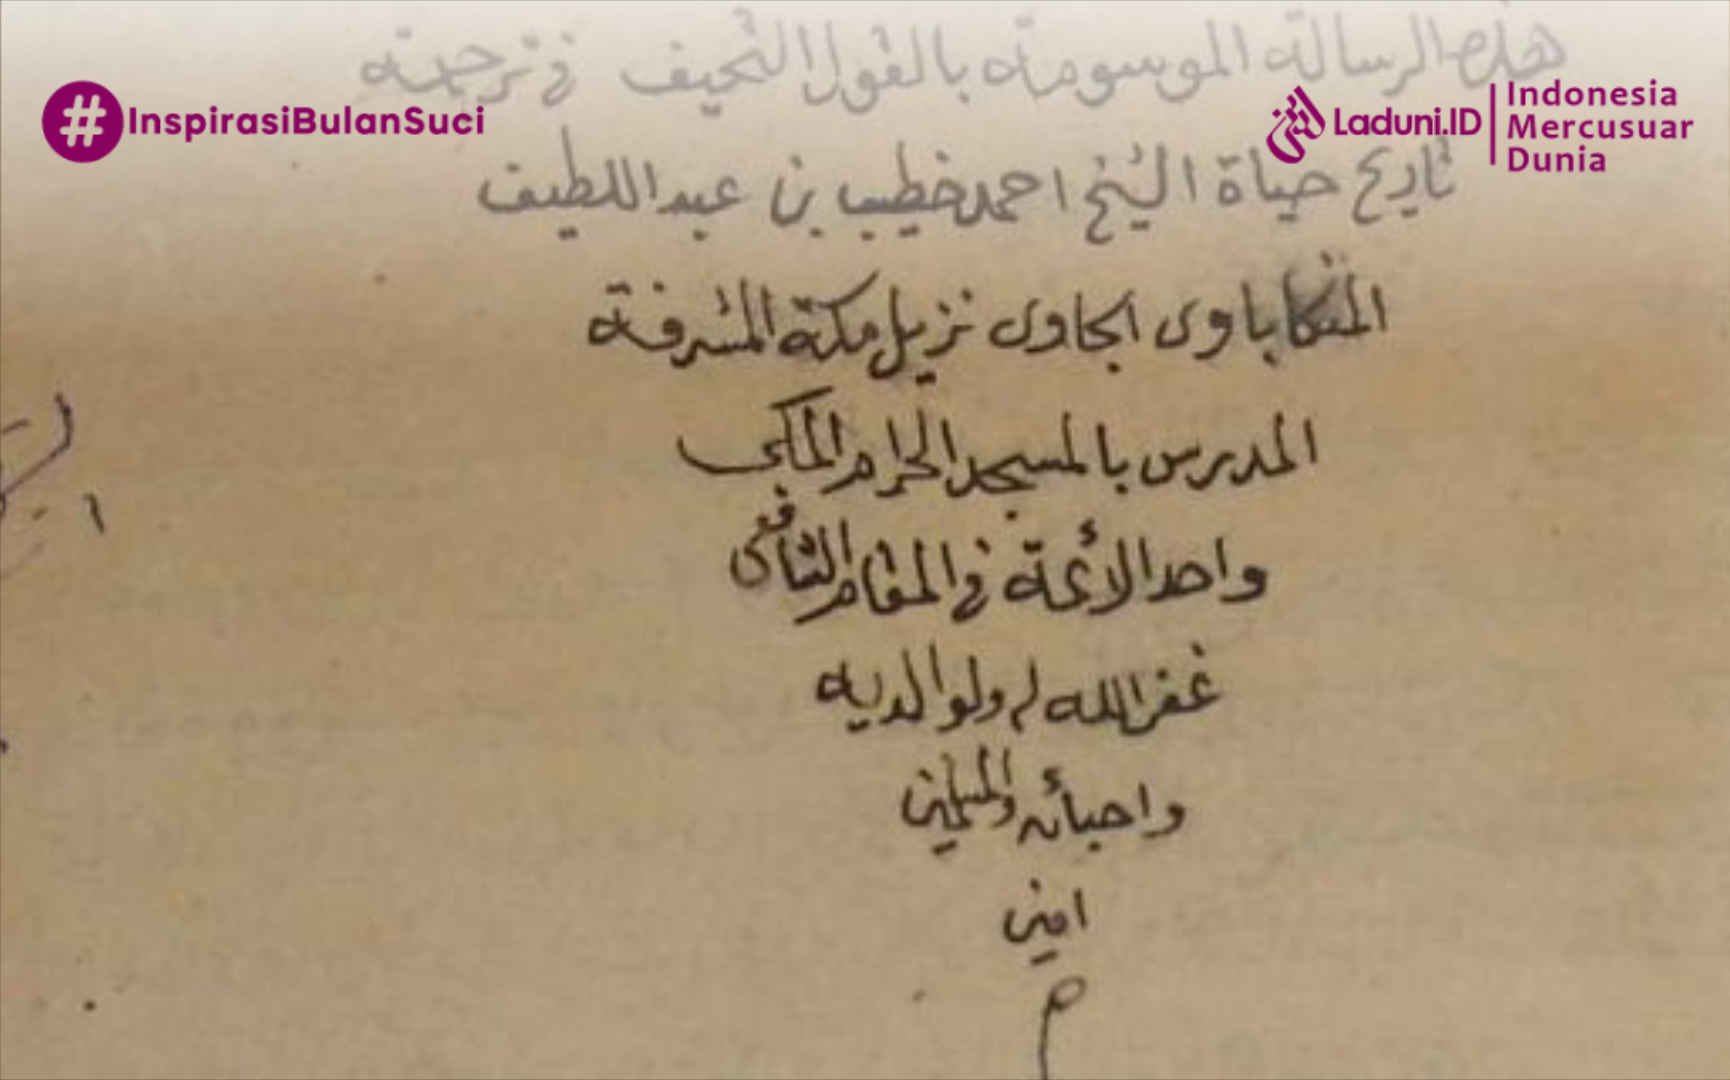 هذه الرسالة الموسومة بالقول النحيف في ترجمة
#InspirasiBulanSuci
Laduni.ID
Indonesia
Mercusuar
Dunia
تاريخ حياة الشيخ احمد خطيب بن عبد اللطيف
المنكاباوى الجاوى نزيل مكة المشرفة
المدرس بالمسجد الحرام المكى
واحد الائمة في المقام الشافعى
غفر الله له ولوالديه
واحبائه والمسلمين
امين
م